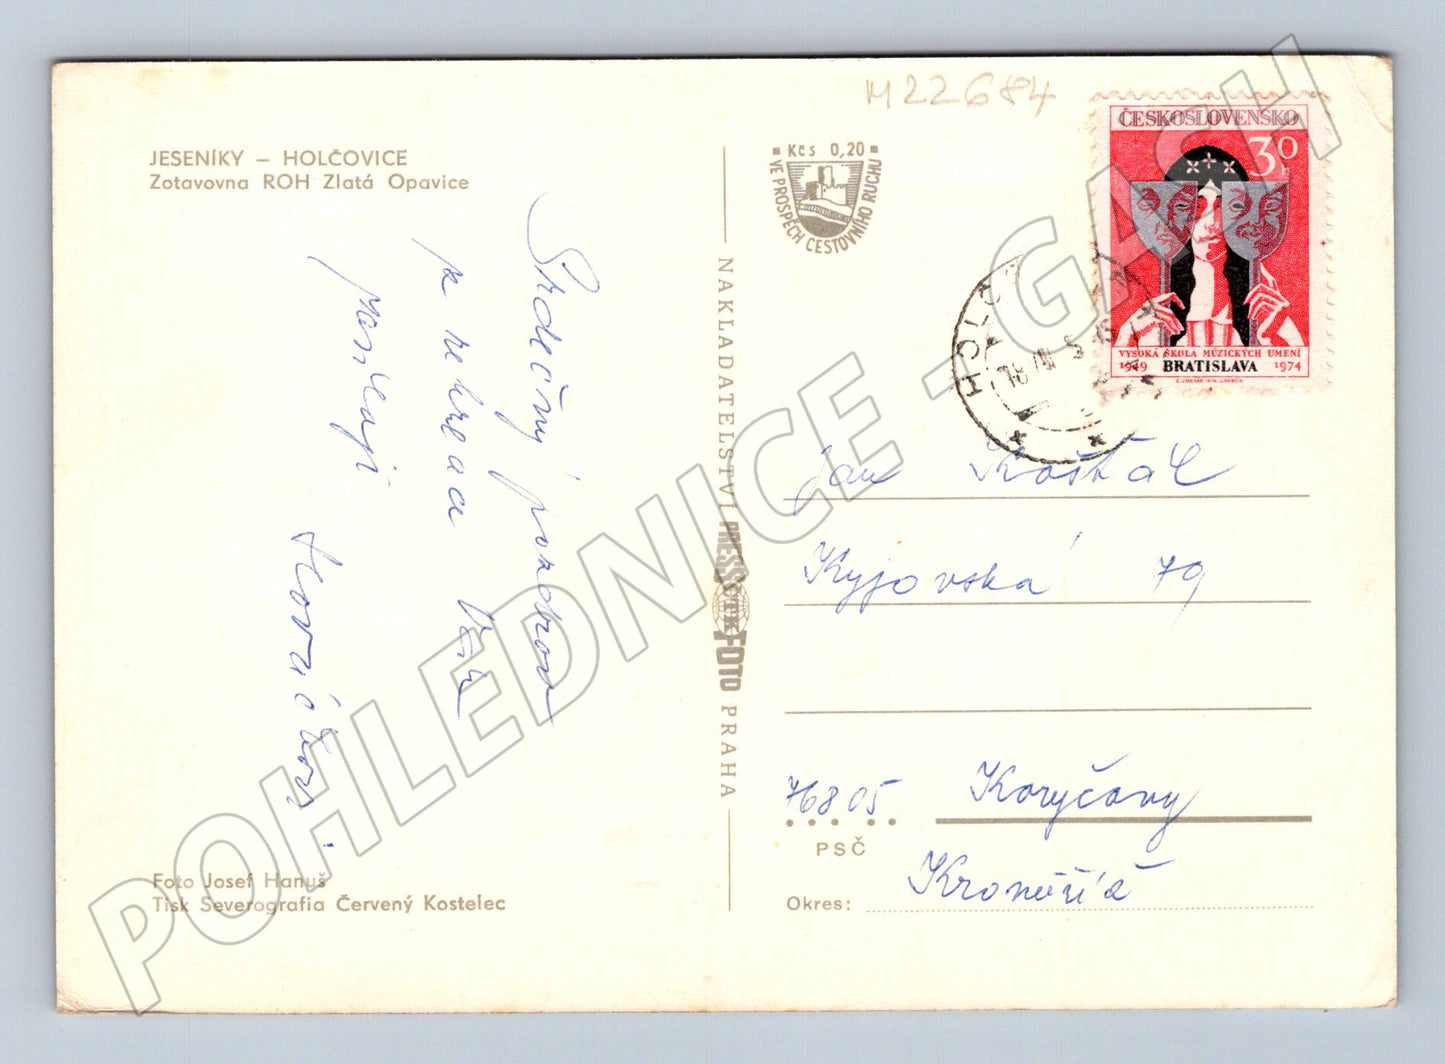 M22684
JESENÍKY – HOLČOVICE
Zotavovna ROH Zlatá Opavice
Kčs 0,20
VE PROSPĚCH CESTOVNÍHO RUCHU
ČESKOSLOVENSKO
30 h
VYSOKÁ ŠKOLA MÚZICKÝCH UMENÍ
1949 BRATISLAVA 1974
HOLČ
Srdečný pozdrav
z rekreace Vám
posílají
NAKLADATELSTVÍ PRESSFOTO PRAHA
ČTK
Jan Košťál
Kyjovská 79
76805 Koryčany
PSČ
Kroměříž
Okres:
Foto Josef Hanuš
Tisk Severografia Červený Kostelec
POHLEDNICE - GASH